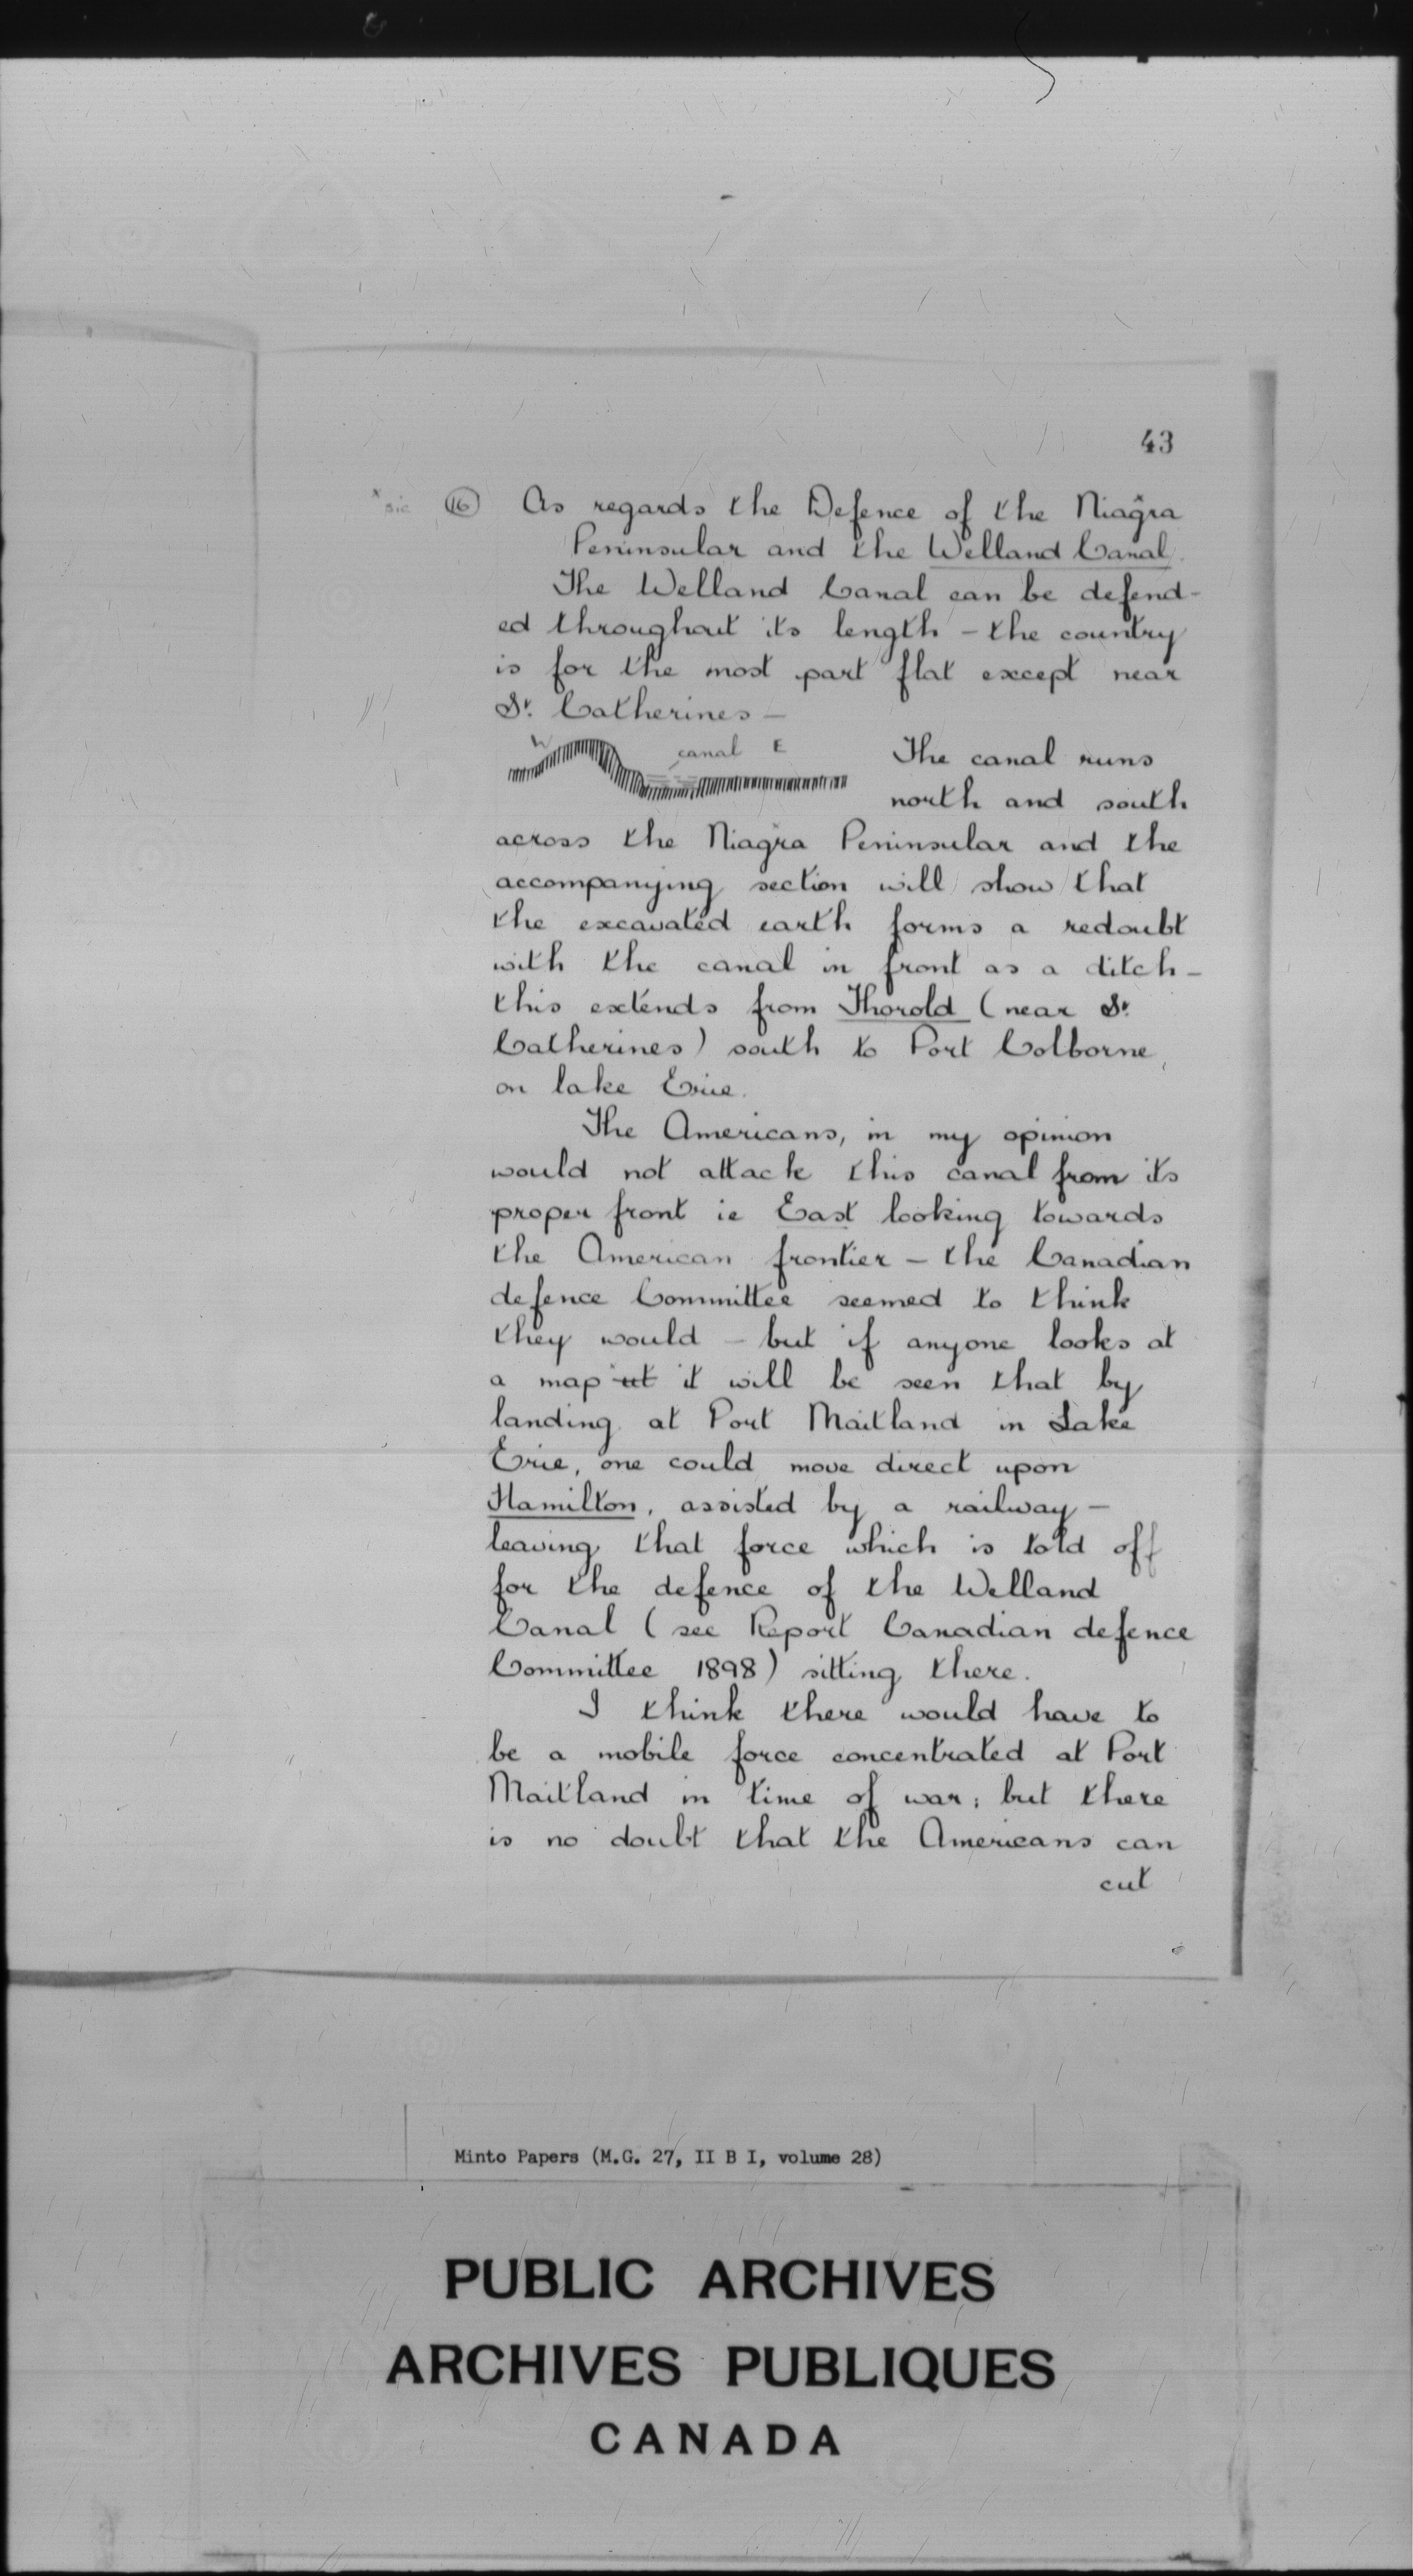 43
x sic (16) As regards the Defence of the Niagra
Peninsular and the Welland Canal.
The Welland Canal can be defend-
ed throughout its length – the country
is for the most part flat except near
St. Catherines –
W canal E
The canal runs
north and south
across the Niagra Peninsular and the
accompanying section will show that
the excavated earth forms a redoubt
with the canal in front as a ditch –
this extends from Thorold (near St.
Catherines) south to Port Colborne,
on lake Erie.
The Americans, in my opinion
would not attack this canal from its
proper front ie East looking towards
the American frontier – the Canadian
defence Committee seemed to think
they would – but if anyone looks at
a map it will be seen that by
landing at Port Maitland in Lake
Erie, one could move direct upon
Hamilton, assisted by a railway –
leaving that force which is told off
for the defence of the Welland
Canal (see Report Canadian defence
Committee 1898) sitting there.
I think there would have to
be a mobile force concentrated at Port
Maitland in time of war; but there
is no doubt that the Americans can
cut
Minto Papers (M.G. 27, II B I, volume 28)
PUBLIC ARCHIVES
ARCHIVES PUBLIQUES
CANADA